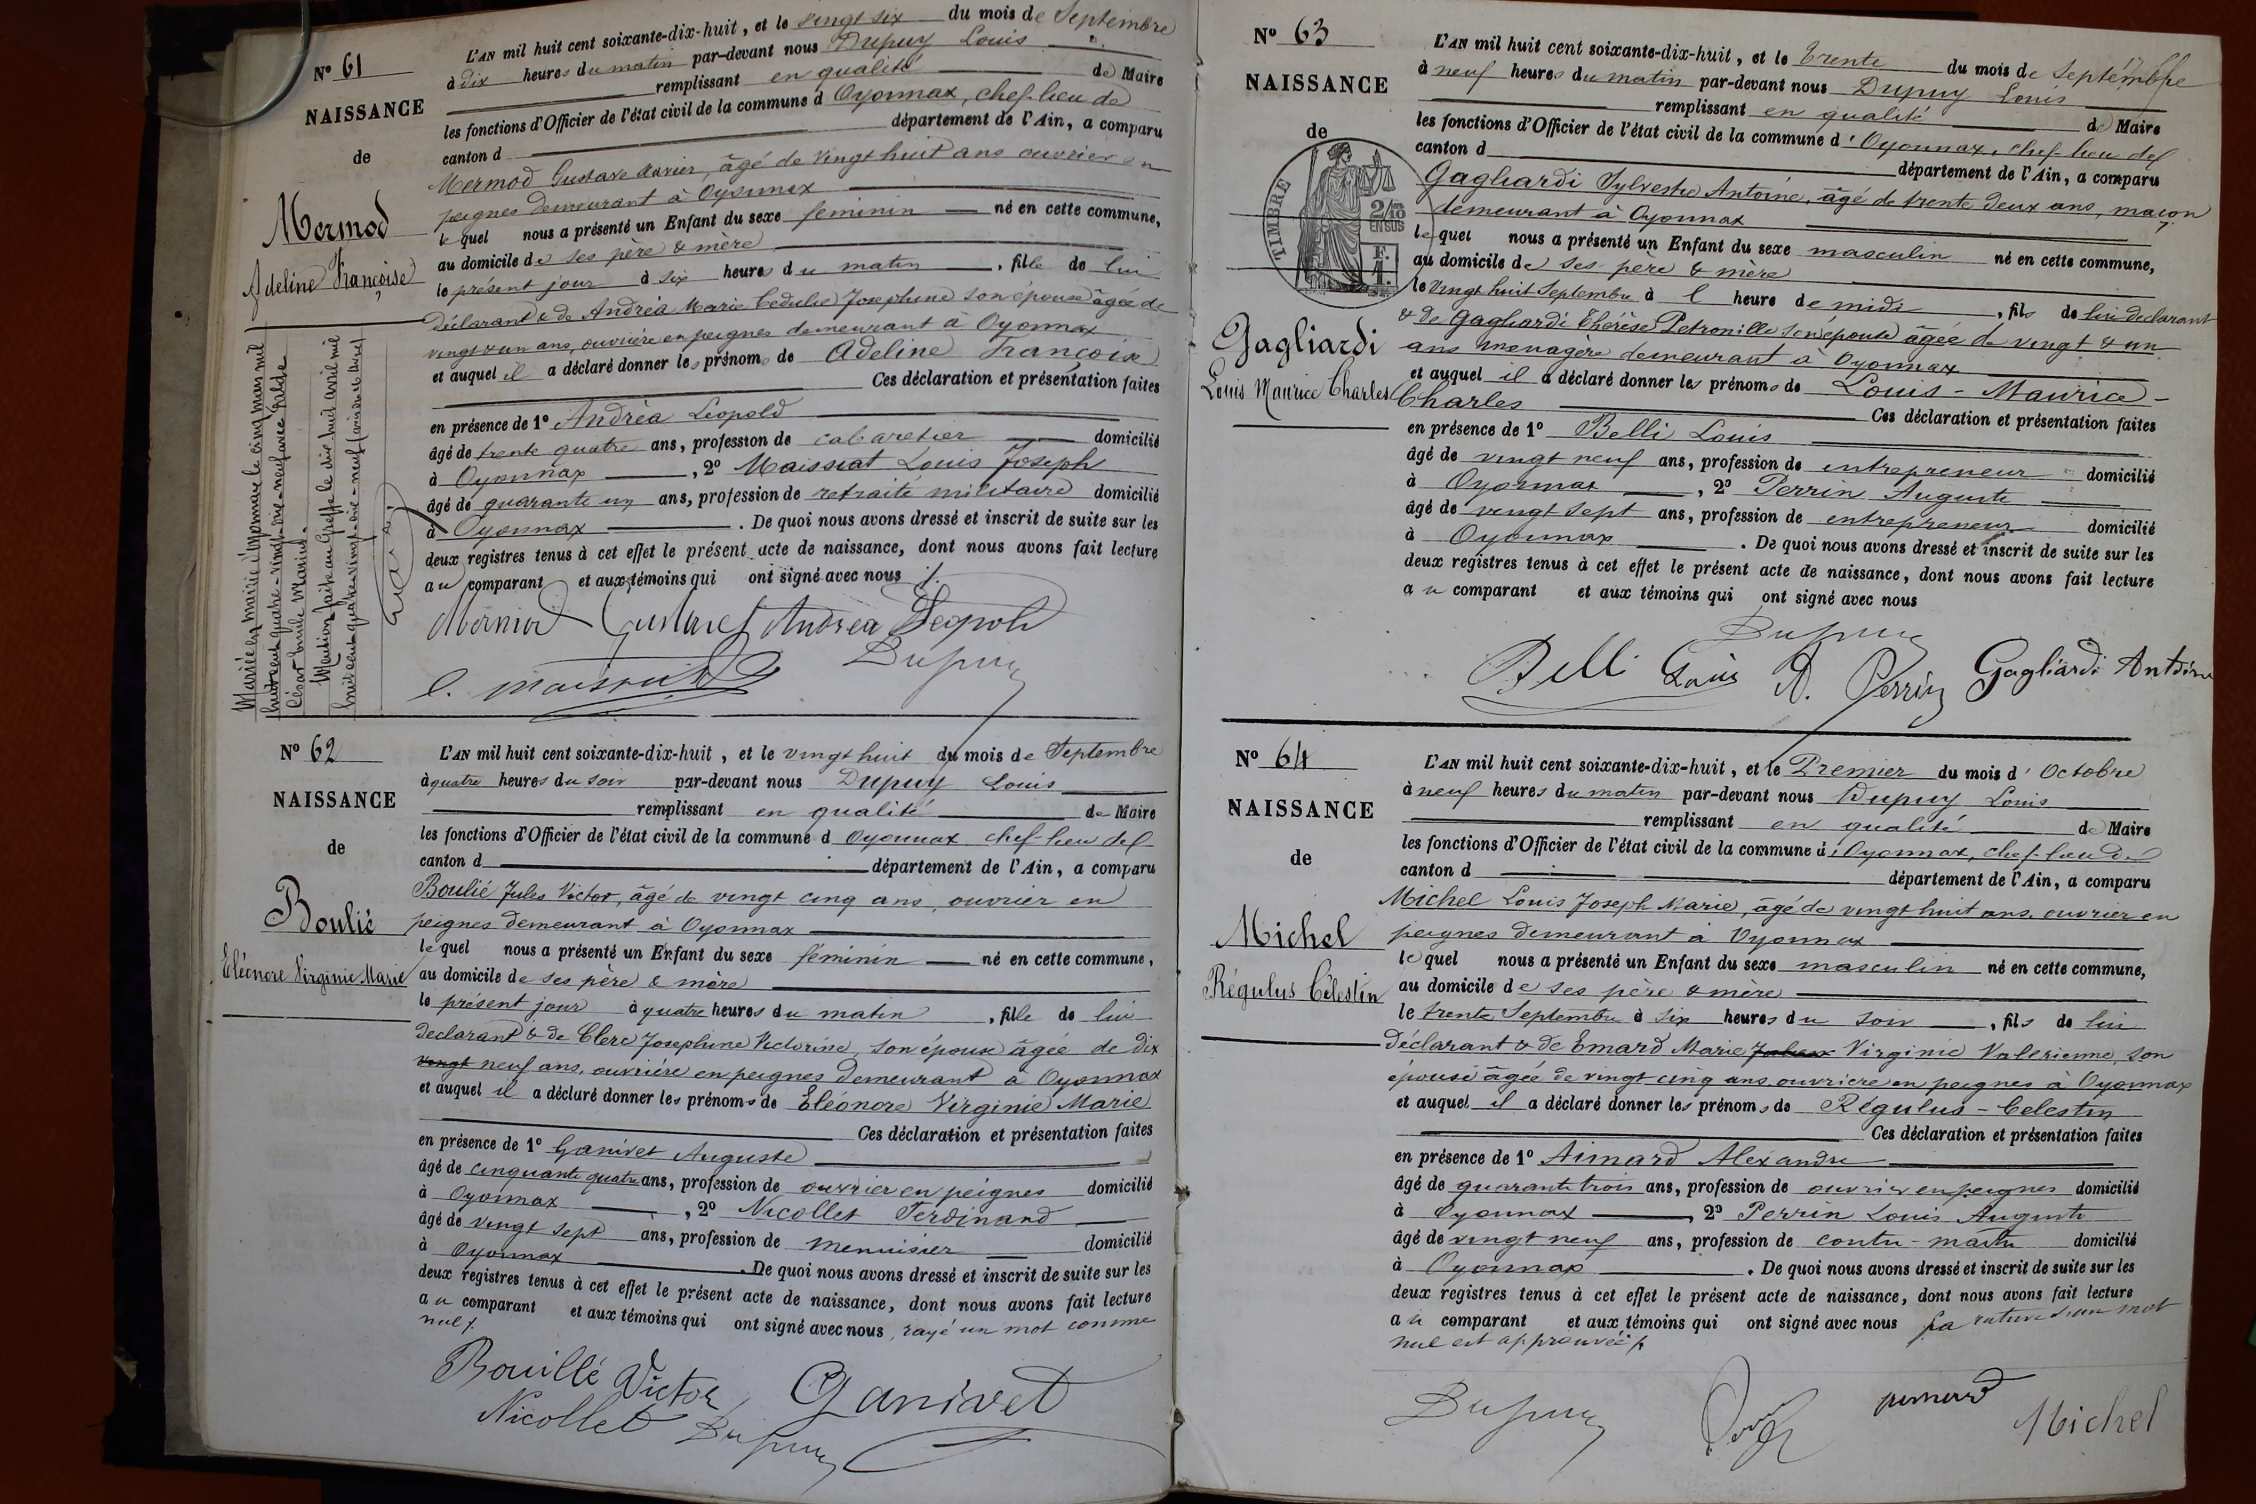 Nº 61
NAISSANCE
de
Mermod
Adeline Françoise
Mariée en mairie d'Oyonnax le cinq mars mil
huit cent quatre-vingt-dix-neuf avec
César Emile Marius.
Mention faite au Greffe le dix huit avril mil
huit cent quatre vingt-dix-neuf
L'AN mil huit cent soixante-dix-huit, et le vingt six du mois de Septembre
à dix heures du matin par-devant nous Dupuy Louis
remplissant en qualité de Maire
les fonctions d'Officier de l'état civil de la commune d Oyonnax, chef-lieu de
canton d département de l'Ain, a comparu
Mermod Gustave Xavier, âgé de vingt huit ans ouvrier en
peignes demeurant à Oyonnax
lequel nous a présenté un Enfant du sexe féminin né en cette commune,
au domicile de ses père & mère
le présent jour à six heures du matin, fille de lui
Déclarant & de Andréa Marie Josephine son épouse âgée de
vingt & un ans, ouvrière en peignes demeurant à Oyonnax
et auquel il a déclaré donner les prénoms de Adeline Françoise
Ces déclaration et présentation faites
en présence de 1º Andréa Léopold
âgé de trente quatre ans, profession de cabaretier domicilié
à Oyonnax, 2º Maissiat Louis Joseph
âgé de quarante un ans, profession de retraité militaire domicilié
à Oyonnax. De quoi nous avons dressé et inscrit de suite sur les
deux registres tenus à cet effet le présent acte de naissance, dont nous avons fait lecture
au comparant et aux témoins qui ont signé avec nous
Mermod Gustave Andréa Léopold
L. Maissiat Dupuy
Nº 62
NAISSANCE
de
Boulié
Eléonore Virginie Marie
L'AN mil huit cent soixante-dix-huit, et le vingt huit du mois de Septembre
à quatre heures du soir par-devant nous Dupuy Louis
remplissant en qualité de Maire
les fonctions d'Officier de l'état civil de la commune d Oyonnax chef-lieu de
canton d département de l'Ain, a comparu
Boulié Jules Victor, âgé de vingt cinq ans, ouvrier en
peignes demeurant à Oyonnax
lequel nous a présenté un Enfant du sexe féminin né en cette commune,
au domicile de ses père & mère
le présent jour à quatre heures du matin, fille de lui
déclarant & de Clerc Josephine Victorine, son épouse âgée de dix
vingt neuf ans, ouvrière en peignes demeurant à Oyonnax
et auquel il a déclaré donner les prénoms de Eléonore Virginie Marie
Ces déclaration et présentation faites
en présence de 1º Ganivet Auguste
âgé de cinquante quatre ans, profession de ouvrier en peignes domicilié
à Oyonnax, 2º Nicollet Ferdinand
âgé de vingt sept ans, profession de menuisier domicilié
à Oyonnax. De quoi nous avons dressé et inscrit de suite sur les
deux registres tenus à cet effet le présent acte de naissance, dont nous avons fait lecture
au comparant et aux témoins qui ont signé avec nous, rayé un mot comme
nul
Bouillé Victor Ganivet
Nicollet Dupuy
Nº 63
NAISSANCE
de
TIMBRE
2/10
EN SUS
F.
1.
Gagliardi
Louis Maurice Charles
L'AN mil huit cent soixante-dix-huit, et le Trente du mois de Septembre
à neuf heures du matin par-devant nous Dupuy Louis
remplissant en qualité de Maire
les fonctions d'Officier de l'état civil de la commune d'Oyonnax, chef-lieu de
canton d département de l'Ain, a comparu
Gagliardi Sylvestre Antoine, âgé de trente deux ans, maçon
demeurant à Oyonnax
lequel nous a présenté un Enfant du sexe masculin né en cette commune,
au domicile de ses père & mère
le vingt huit Septembre à l heure de midi, fils de lui déclarant
& de Gagliardi Thérèse Petronille son épouse âgée de vingt & un
ans ménagère demeurant à Oyonnax
et auquel il a déclaré donner les prénoms de Louis-Maurice-
Charles Ces déclaration et présentation faites
en présence de 1º Belli Louis
âgé de vingt neuf ans, profession de entrepreneur domicilié
à Oyonnax, 2º Perrin Auguste
âgé de vingt sept ans, profession de entrepreneur domicilié
à Oyonnax. De quoi nous avons dressé et inscrit de suite sur les
deux registres tenus à cet effet le présent acte de naissance, dont nous avons fait lecture
au comparant et aux témoins qui ont signé avec nous
Dupuy
Belli Louis A. Perrin Gagliardi Antoine
Nº 64
NAISSANCE
de
Michel
Régulus Célestin
L'AN mil huit cent soixante-dix-huit, et le Premier du mois d'Octobre
à neuf heures du matin par-devant nous Dupuy Louis
remplissant en qualité de Maire
les fonctions d'Officier de l'état civil de la commune d'Oyonnax, chef-lieu de
canton d département de l'Ain, a comparu
Michel Louis Joseph Marie, âgé de vingt huit ans, ouvrier en
peignes demeurant à Oyonnax
lequel nous a présenté un Enfant du sexe masculin né en cette commune,
au domicile de ses père & mère
le trente Septembre à six heures du soir, fils de lui
Déclarant & de Emard Marie Virginie Valérienne, son
épouse âgée de vingt cinq ans ouvrière en peignes à Oyonnax
et auquel il a déclaré donner les prénoms de Régulus-Célestin
Ces déclaration et présentation faites
en présence de 1º Aimard Alexandre
âgé de quarante trois ans, profession de ouvrier en peignes domicilié
à Oyonnax, 2º Perrin Louis Auguste
âgé de vingt neuf ans, profession de contre-maître domicilié
à Oyonnax. De quoi nous avons dressé et inscrit de suite sur les
deux registres tenus à cet effet le présent acte de naissance, dont nous avons fait lecture
au comparant et aux témoins qui ont signé avec nous La rature d'un mot
nul est approuvée
Dupuy Michel